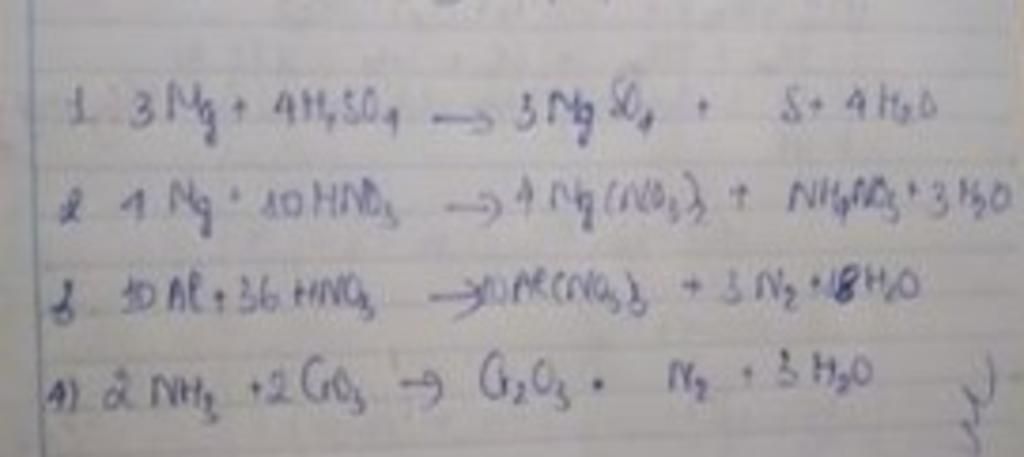 1. 3Mg + 4H₂SO₄ → 3MgSO₄ + S + 4H₂O
2 4Mg + 10HNO₃ → 4Mg(NO₃)₂ + NH₄NO₃ + 3H₂O
3. 10Al + 36HNO₃ → 10Al(NO₃)₃ + 3N₂ + 18H₂O
4) 2NH₃ + 2CrO₃ → Cr₂O₃ + N₂ + 3H₂O